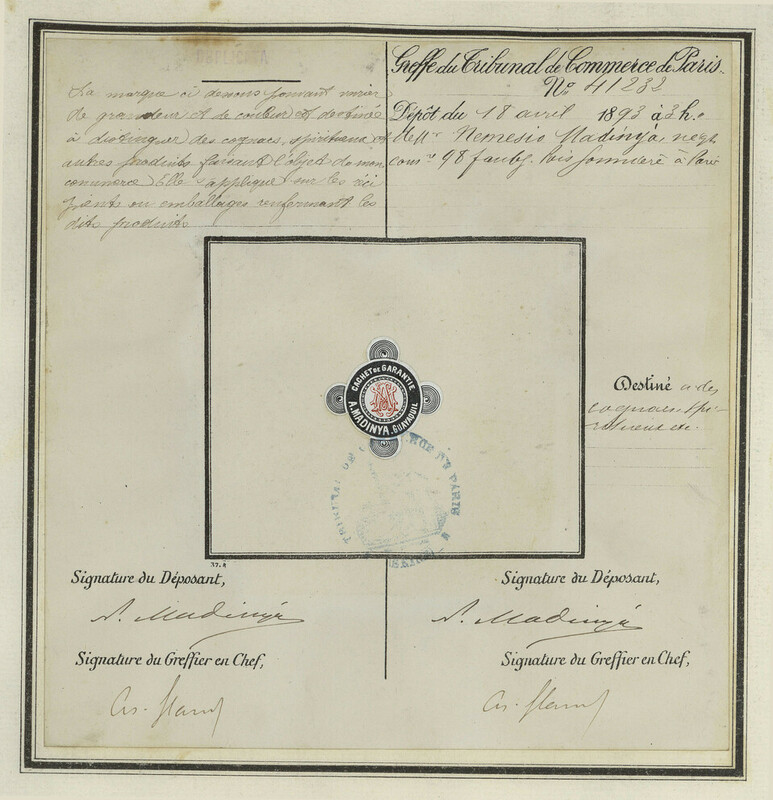 La marque ci dessous pouvant varier
de grandeur et de couleur est destinée
à distinguer des cognacs, spiritueux et
autres produits faisant l'objet de mon
commerce Elle s'applique sur les réci
pients ou emballages renfermant les
dits produits
Greffe du Tribunal de Commerce de Paris.
No 41232
Dépôt du 18 avril 1893 à 3 h.
Nemesio Madinyá, negt
98 faubg. à Paris
CACHET DE GARANTIE
A. MADINYA. GUAYAQUIL
TRIBUNAL DE COMMERCE DE PARIS
Destiné a des
cognacs spi-
ritueux etc.
Signature du Déposant,
Signature du Déposant,
N. Madinyá
N. Madinyá
Signature du Greffier en Chef,
Signature du Greffier en Chef,